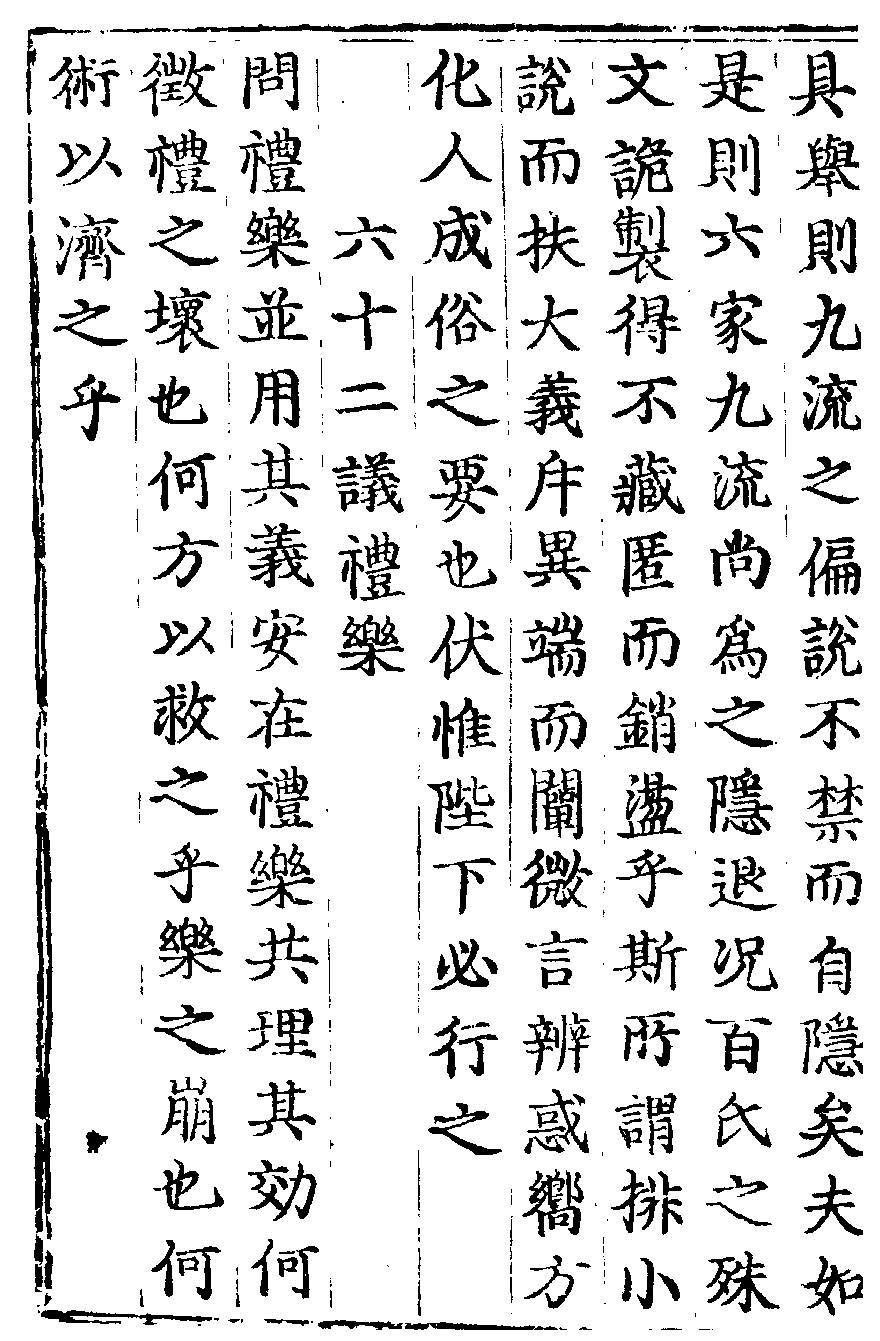 具舉則九流之偏說不禁而自隱矣夫如
是則六家九流尚爲之隱退况百氏之殊
文詭製得不藏匿而銷盪乎斯所謂排小
說而扶大義斥異端而闡微言辨惑嚮方
化人成俗之要也伏惟陛下必行之
六十二議禮樂
問禮樂並用其義安在禮樂共理其効何
徵禮之壞也何方以救之乎樂之崩也何
術以濟之乎